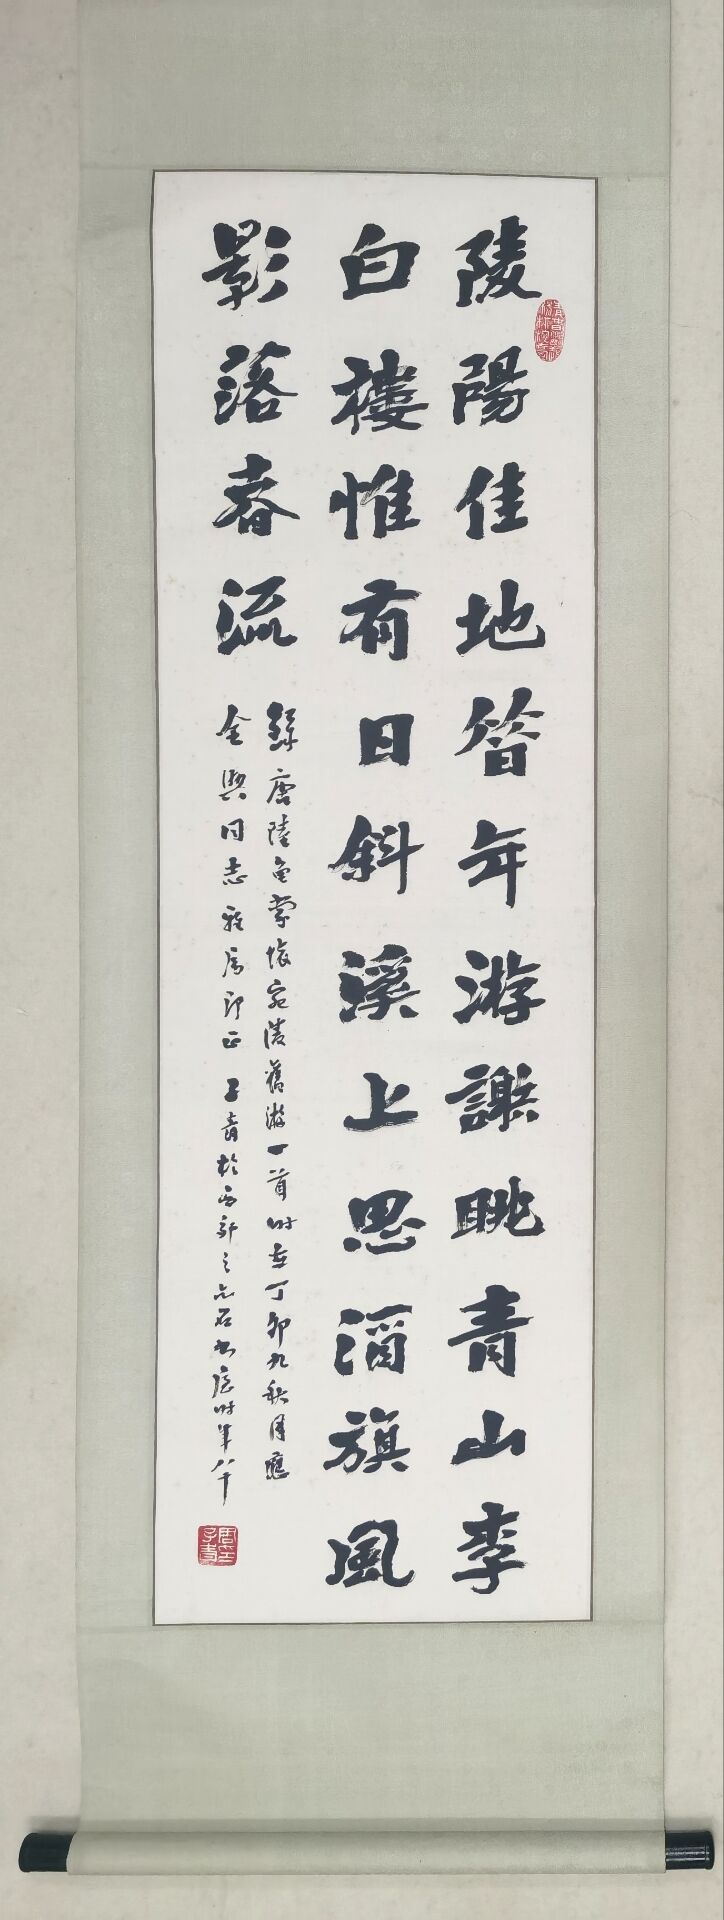 陵陽佳地笤年游謝眺青山李
白樓惟有日斜溪上思酒旗風
影落春流
錄唐陸龜蒙懷宛陵舊游一首時在丁卯九秋月應
金興同志雅屬即正 子青於西郊之 石書 時年八十
周子青